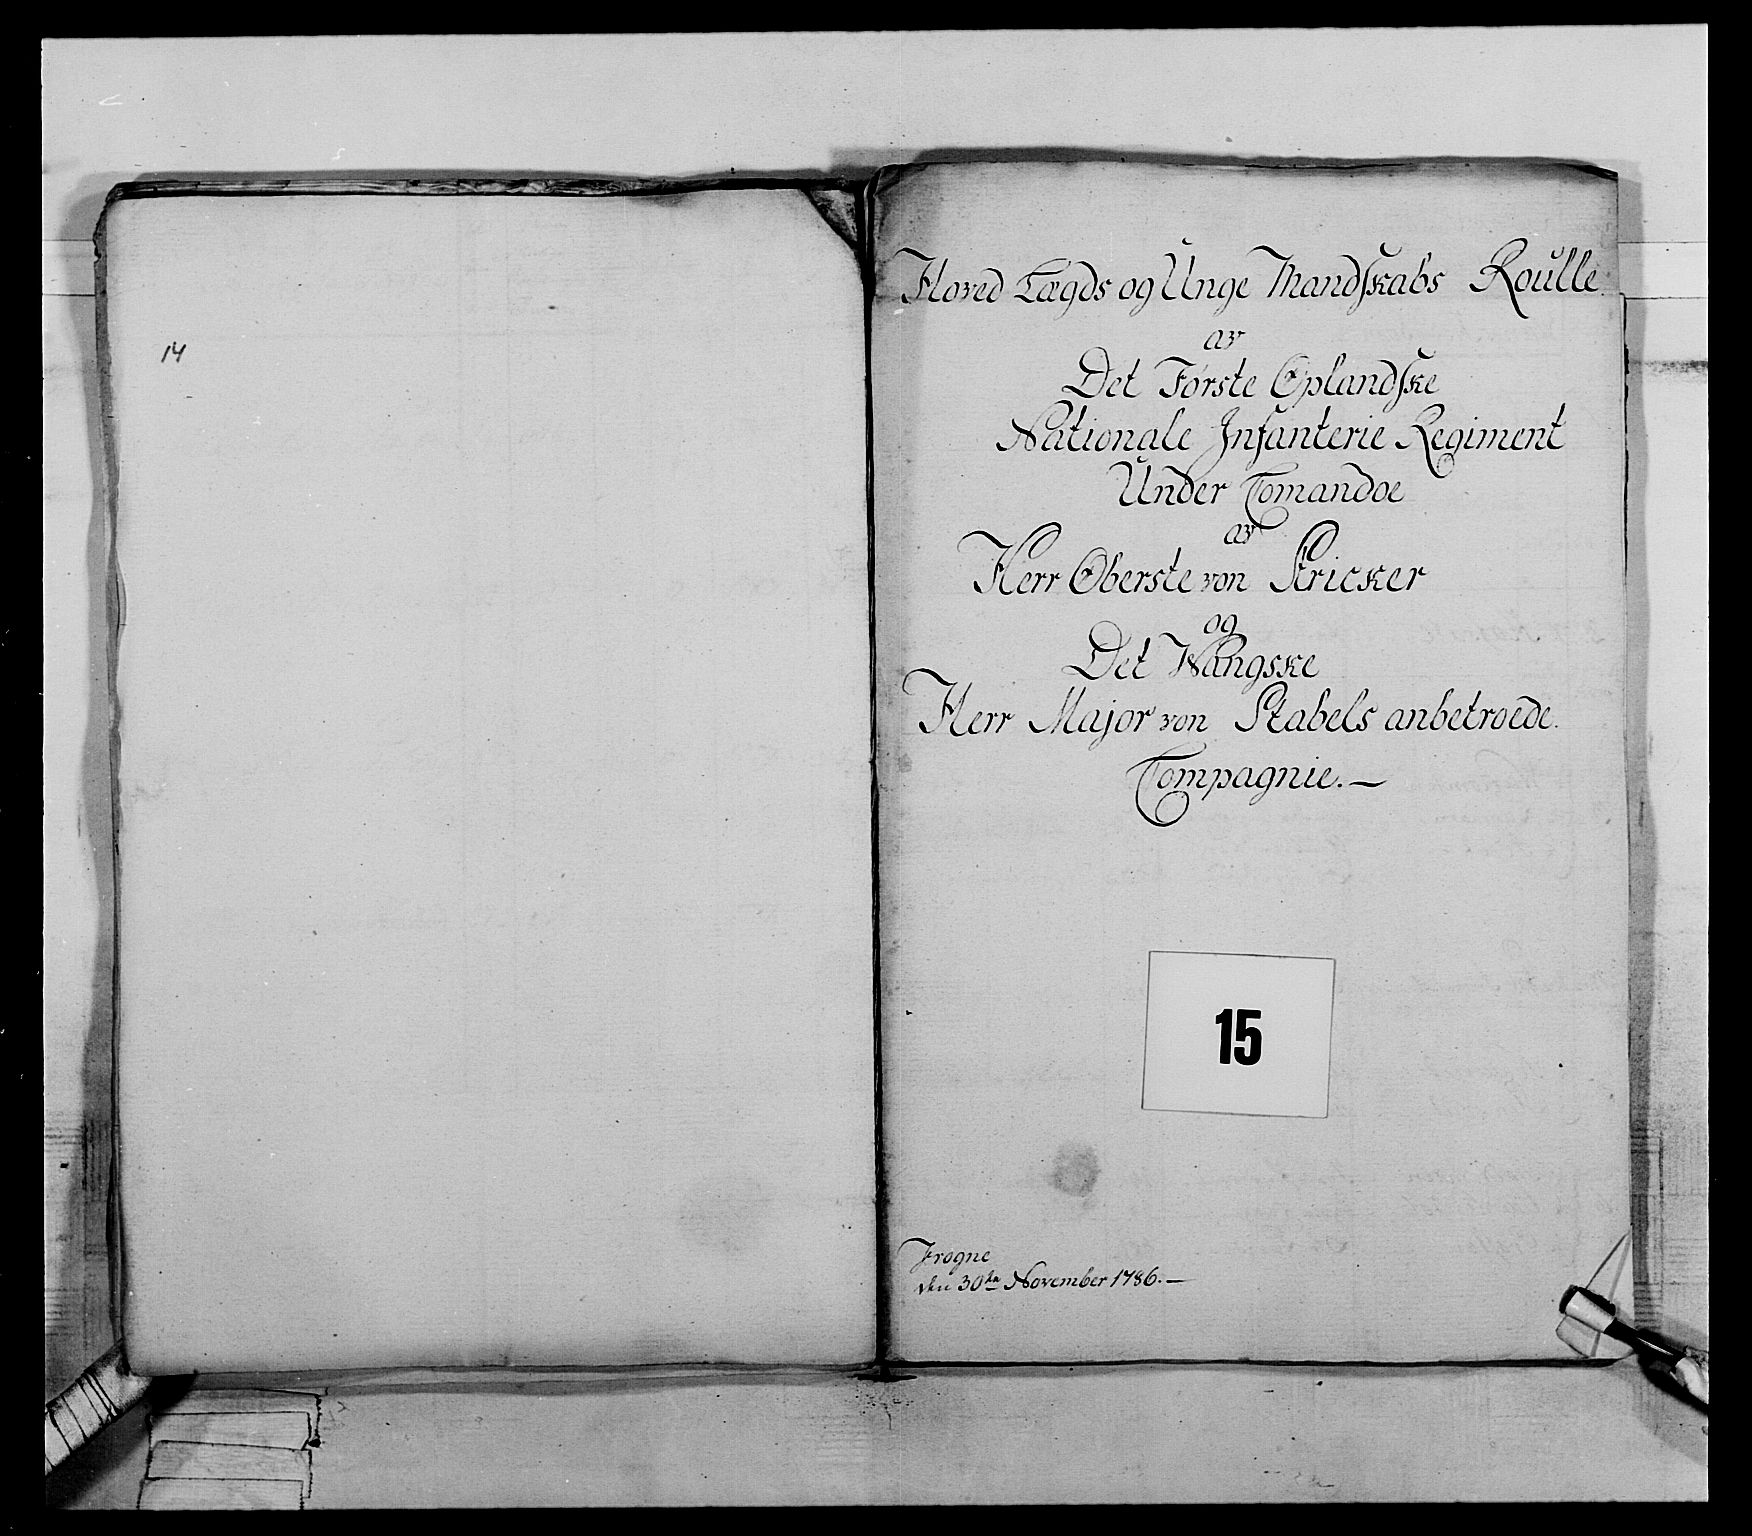 14
Hoved Lægds og Unge Mandskabs Roulle.
av
Det Første Oplandske
Nationale Infanterie Regiment
Under Comandoe
av
Herr Oberste von Stricker
og
Det Wangske
Herr Major von Stabels anbetroede.
Compagnie. —
15
Frogne
den 30te November 1786. —